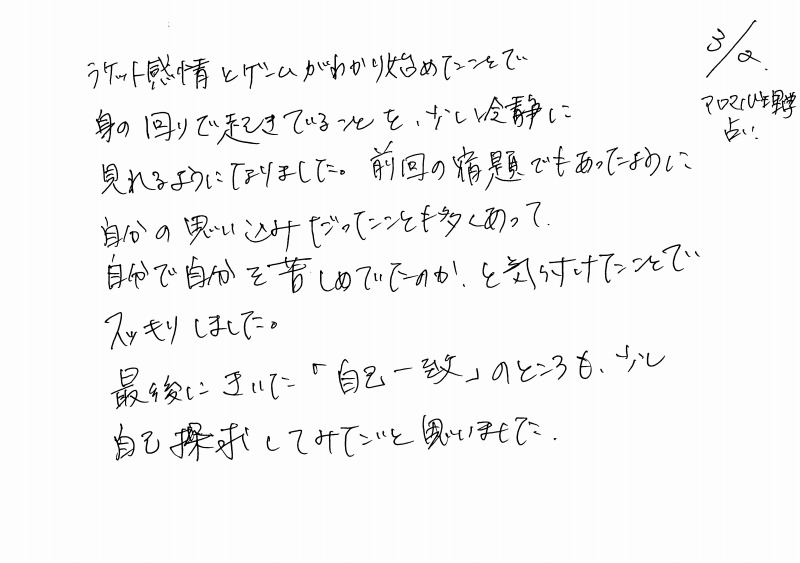 3/2.
占い.
ラケット感情とゲームがわかり始めたことで
身の回りで起きていることを、少し冷静に
見れるようになりました。前回の宿題でもあったように
自分の思い込みだったことも多くあって.
自分で自分を苦しめていたのか.と気づけたことで
スッキリしました。
最後にきいた「自己一致」のところも、少し
自己探求してみたいと思いました.